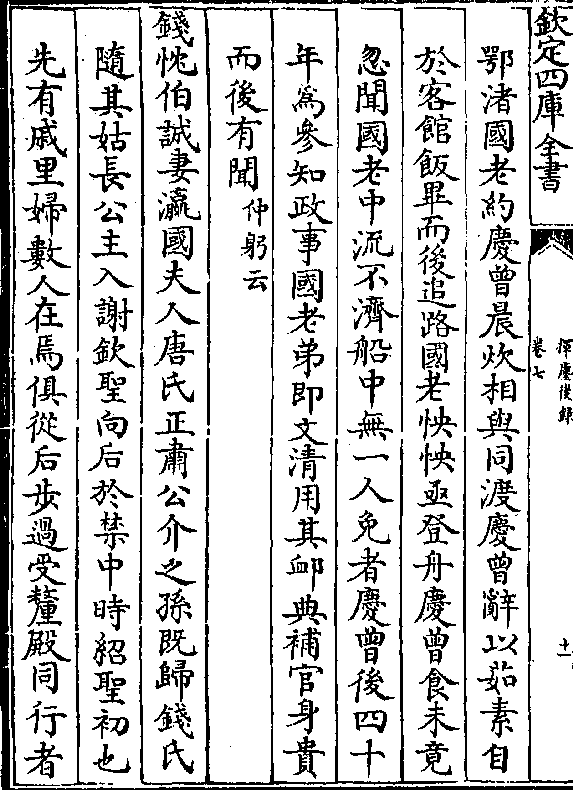 欽定四庫全書
揮麈後錄
卷七
十一
鄂渚國老約慶曾晨炊相與同渡慶曾辭以茹素自
於客館飯畢而後追路國老怏怏亟登舟慶曾食未竟
忽聞國老中流不濟船中無一人免者慶曾後四十
年為參知政事國老弟即文清用其䘏典補官身貴
而後有聞仲躬云
錢忱伯誠妻瀛國夫人唐氏正肅公介之孫既歸錢氏
隨其姑長公主入謝欽聖向后於禁中時紹聖初也
先有戚里婦數人在焉俱從后步過受釐殿同行者